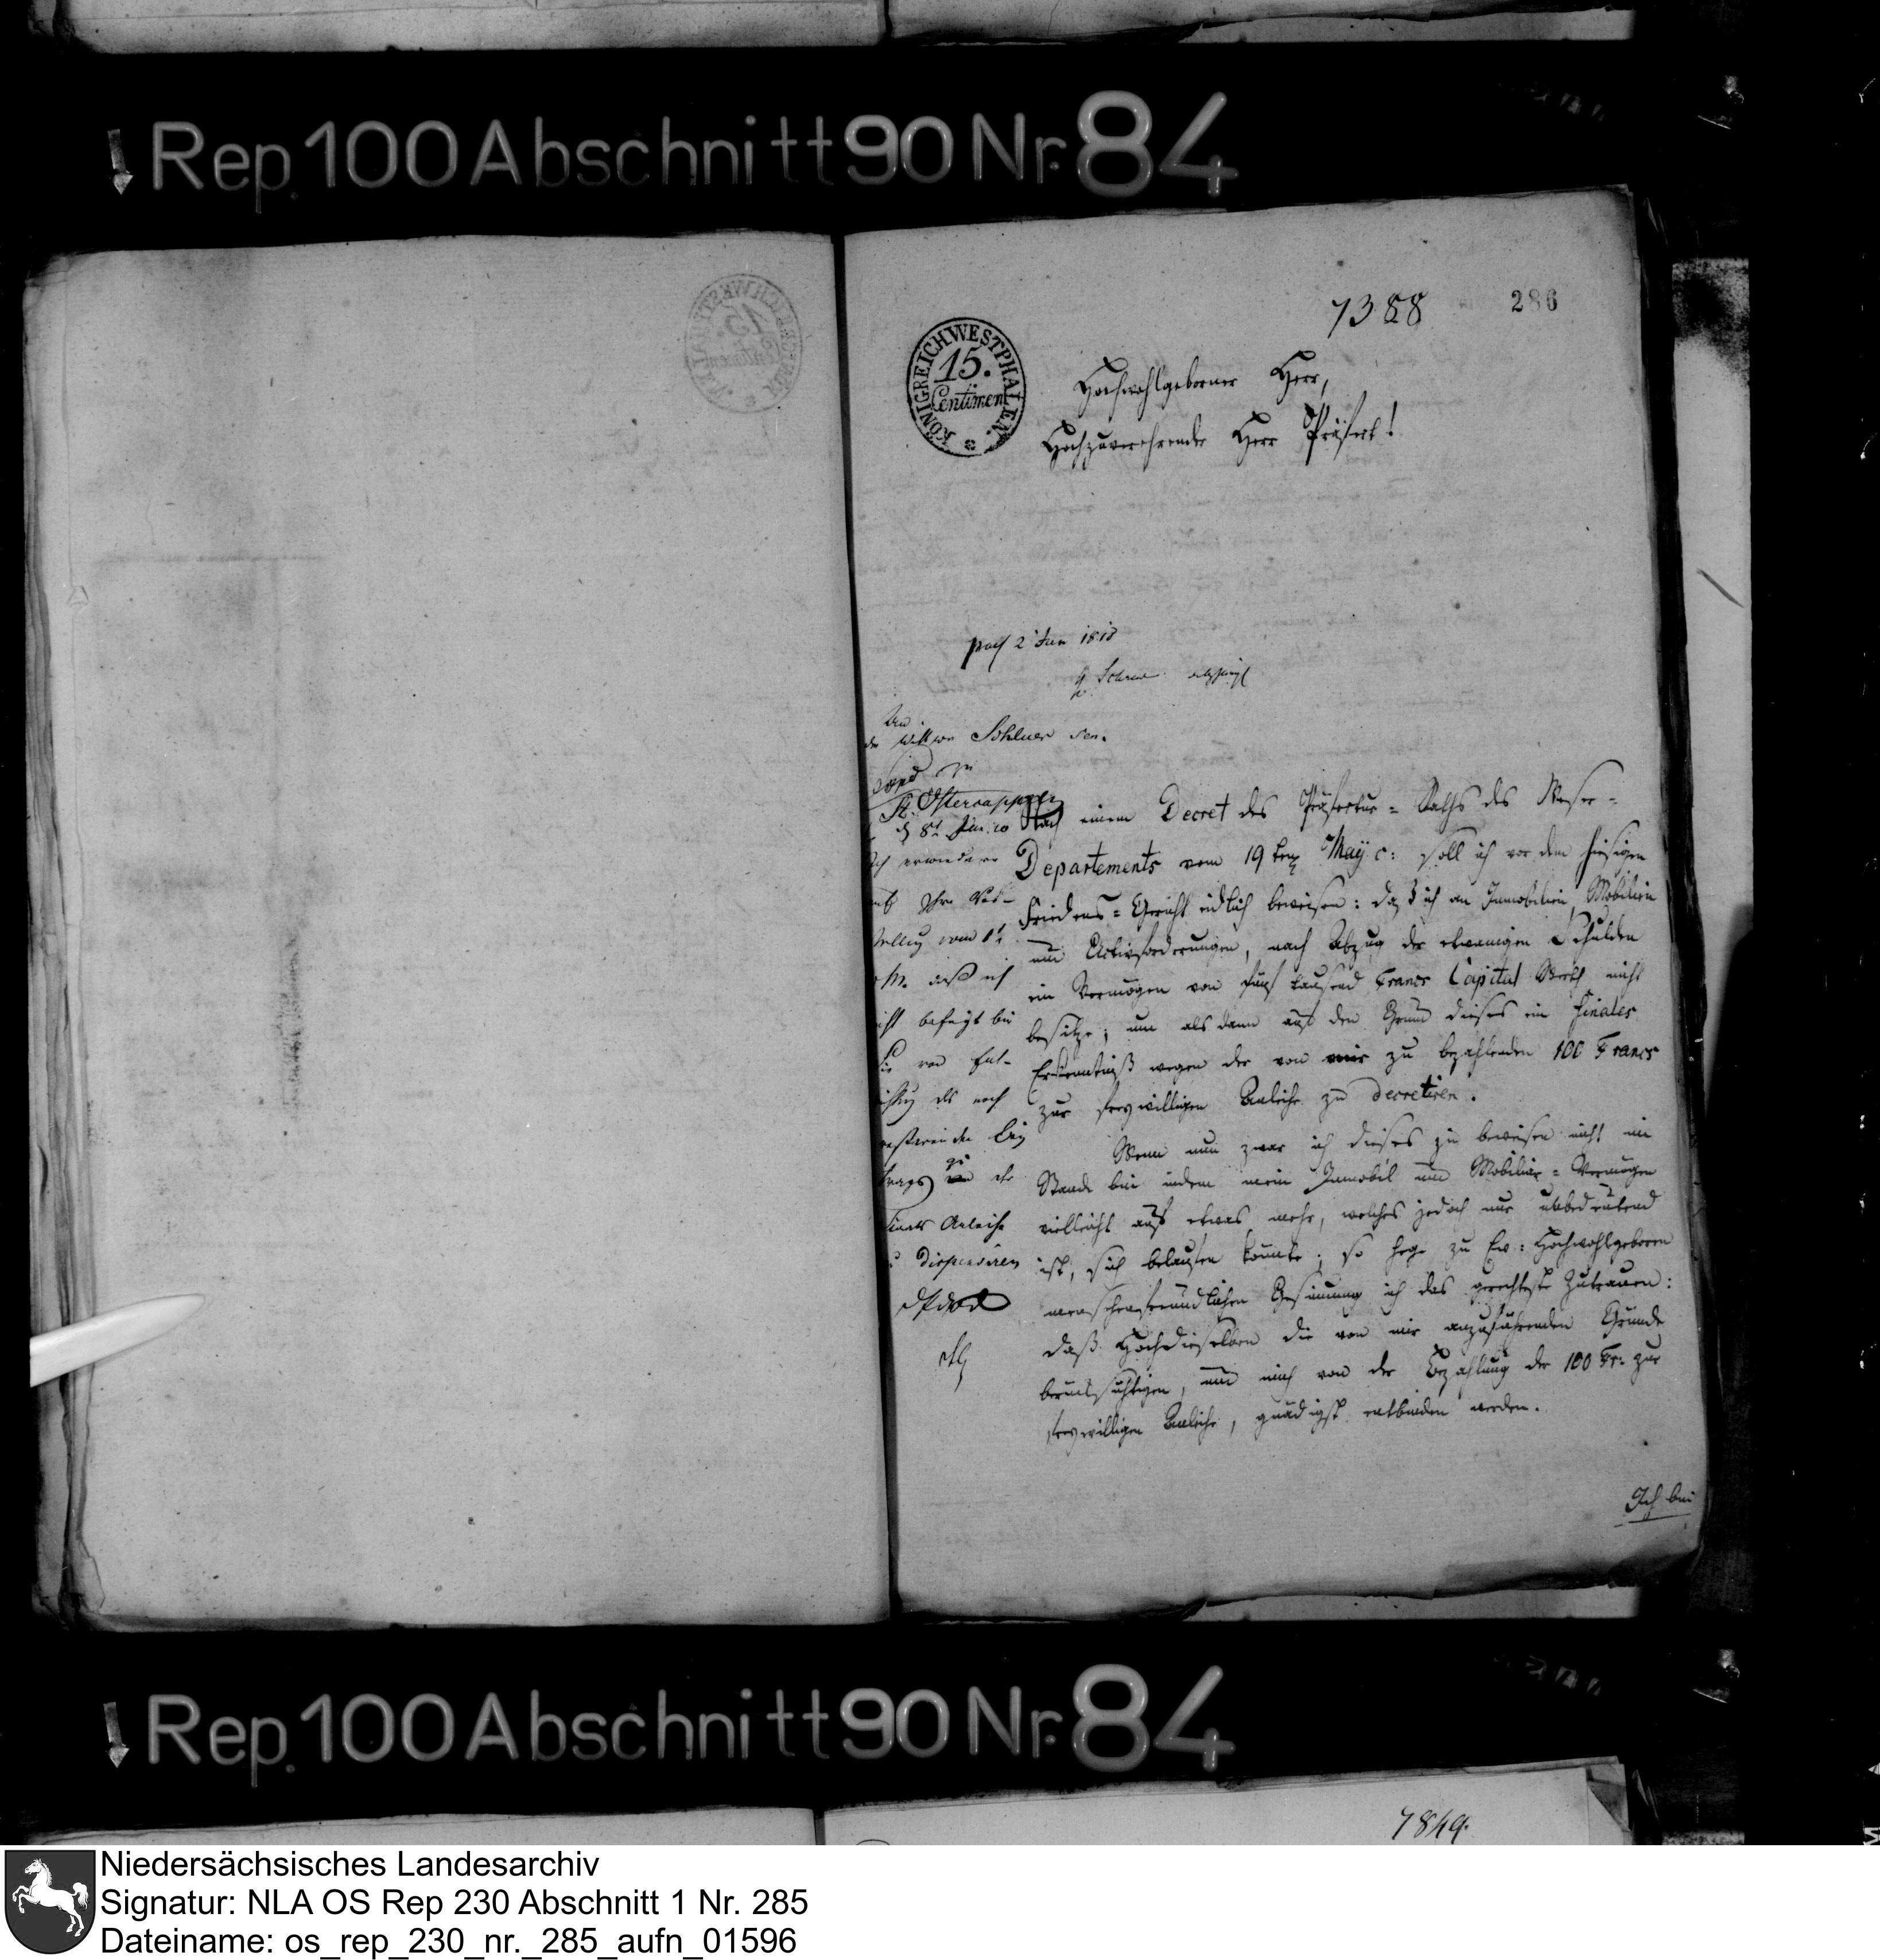 Rep. 100 Abschnitt 90 Nr. 84
7388
286
KÖNIGREICH WESTPHALEN.
15.
Centimen
Hochwohlgeborner Herr,
Hochzuverehrender Herr Präfect!
2 Jun 1810
An
die Wittwe Schlüer sen.
zu
St. Ostercappeln
d 8t Jun. 10
Ich erwiedere
auf Ihre Vor-
stellung vom 1t
d. M. daß ich
nicht befugt bin
Sie von
als noch
Bey
trags zu der
Anleihe
zu dispensiren
Nach einem Decret des Präfectur-Raths des Weser-
Departements vom 19ten May c: soll ich vor dem hiesigen
Friedens-Gericht eidlich beweisen: daß ich an Immobilien, Mobilien
und Activforderungen, nach Abzug der etwanigen Schulden
ein Vermögen von fünf tausend Francs Capital Werth nicht
besitze; um alsdann auf den Grund dieses ein finales
Erkenntniß wegen der von mir zu bezahlenden 100 Francs
zur freywilligen Anleihe zu decretiren.
Wenn nun zwar ich dieses zu beweisen nicht im
Stande bin indem mein Immobil und Mobiliar-Vermögen
vielleicht auf etwas mehr, welches jedoch nur unbedeutend
ist, sich belaufen könnte; so hege zu Ew: Hochwohlgeboren
menschenfreundlichen Gesinnung ich das gerechteste Zutrauen:
daß Hochdieselben die von mir anzuführenden Gründe
berücksichtigen, und mich von der Bezahlung der 100 Fr: zur
freywilligen Anleihe, gnädigst entbinden werden.
Ich bin
Rep. 100 Abschnitt 90 Nr. 84
7849.
Niedersächsisches Landesarchiv
Signatur: NLA OS Rep 230 Abschnitt 1 Nr. 285
Dateiname: os_rep_230_nr._285_aufn_01596